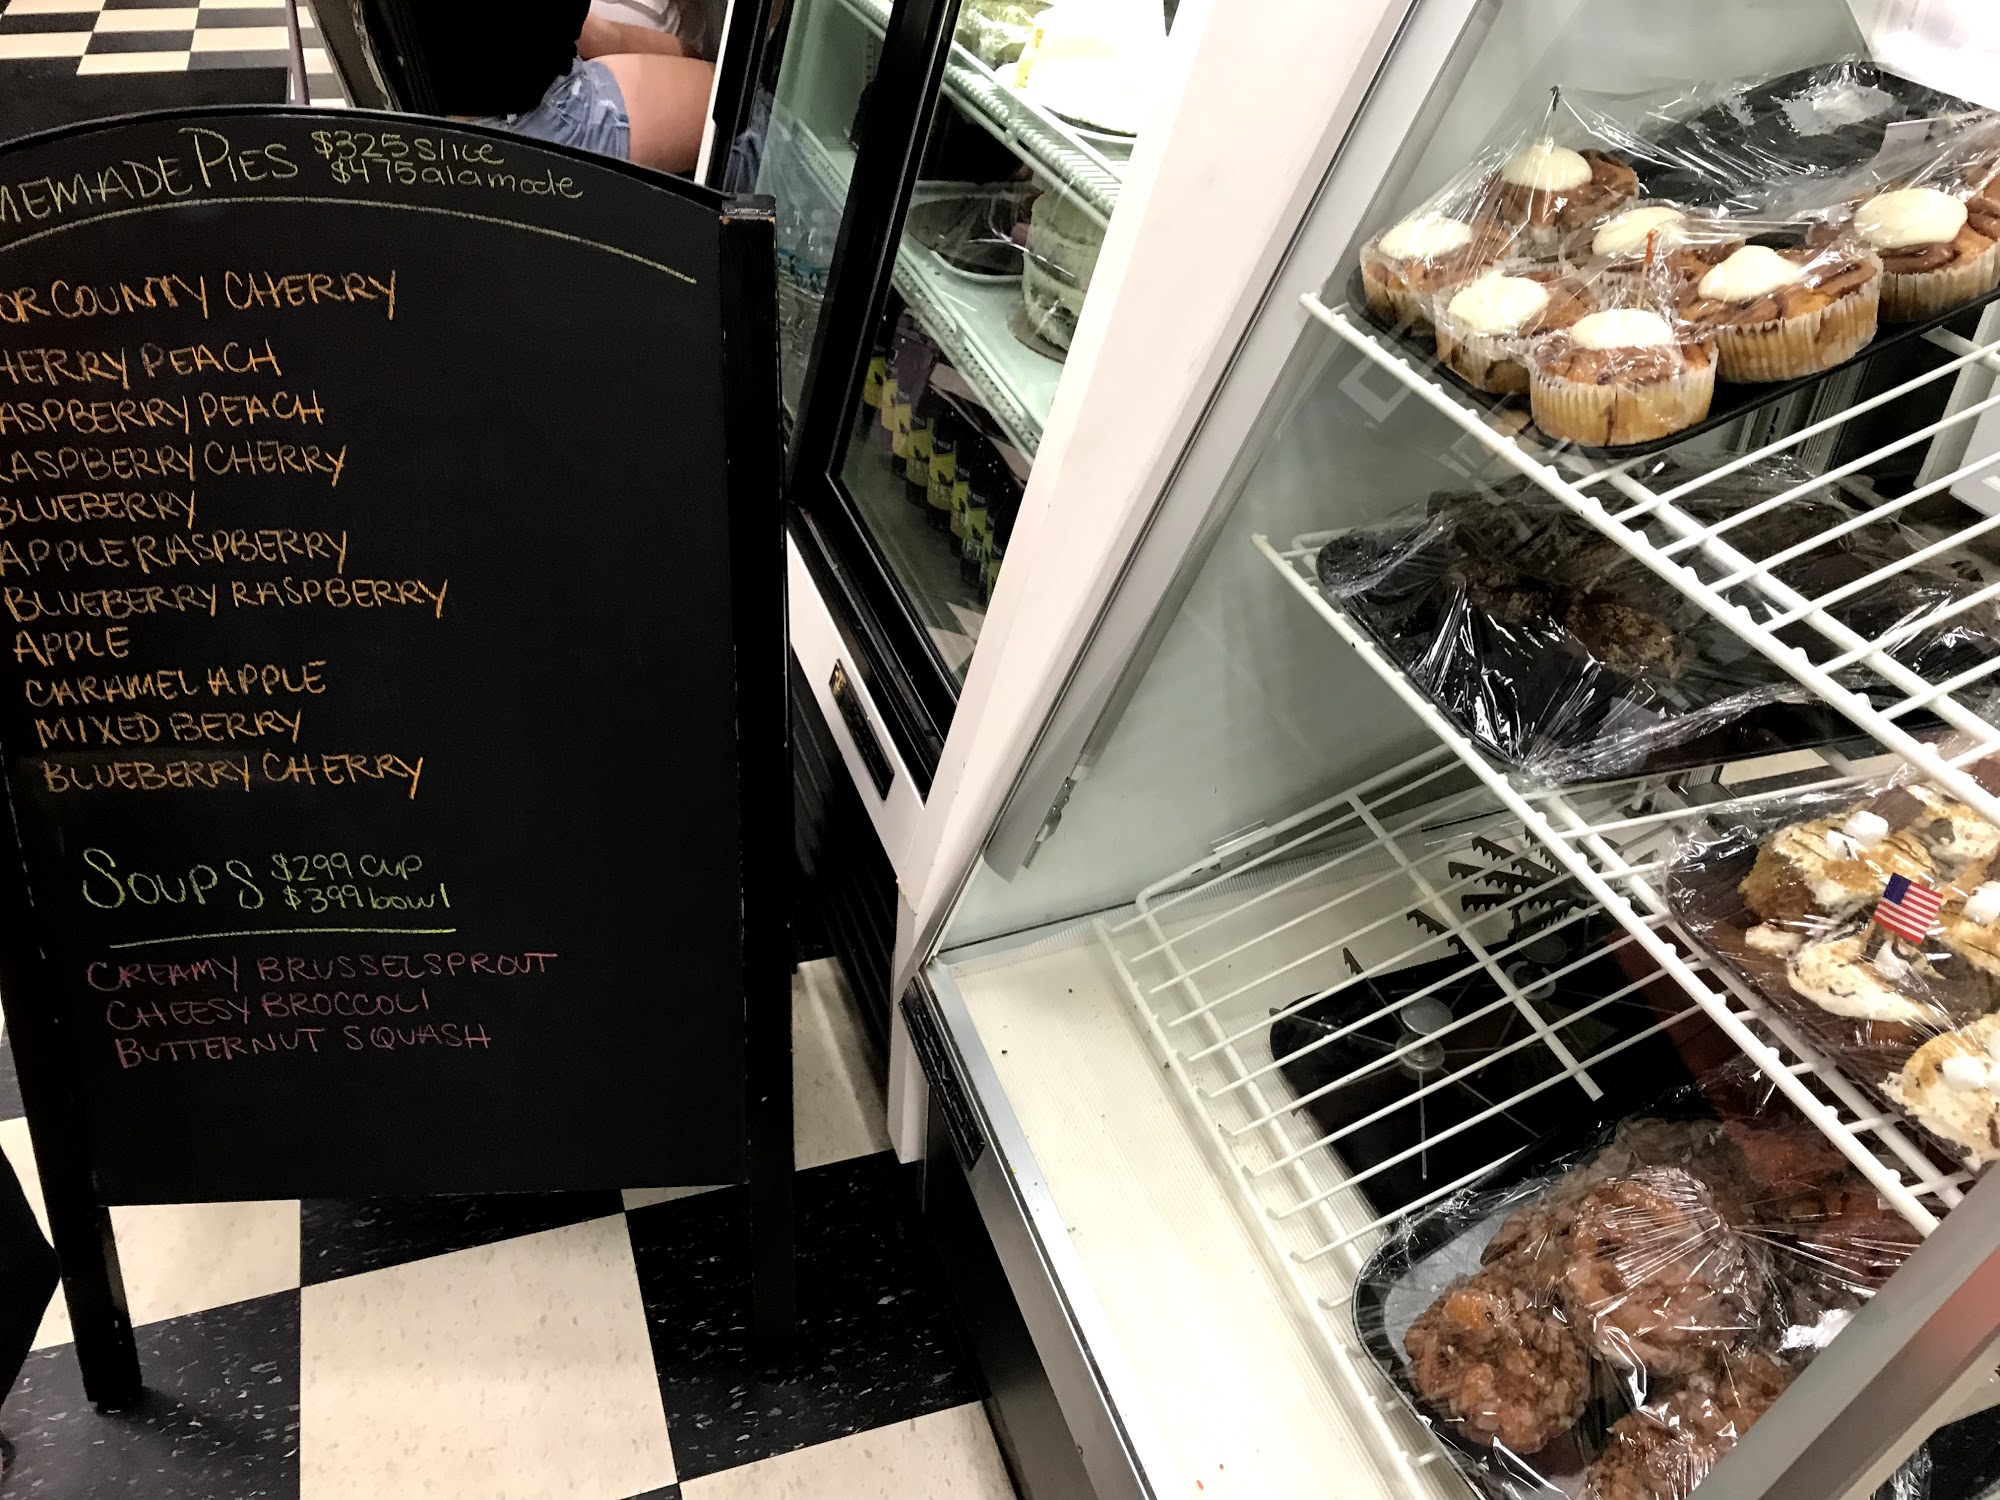 MEMADE PIES $325 slice
$475 alamode
OR COUNTY CHERRY
HERRY PEACH
ASPBERRY PEACH
RASPBERRY CHERRY
BLUEBERRY
APPLE RASPBERRY
BLUEBERRY RASPBERRY
APPLE
CARAMEL APPLE
MIXED BERRY
BLUEBERRY CHERRY
SOUPS $299 cup
$399 bowl
CREAMY BRUSSELSPROUT
CHEESY BROCCOLI
BUTTERNUT SQUASH